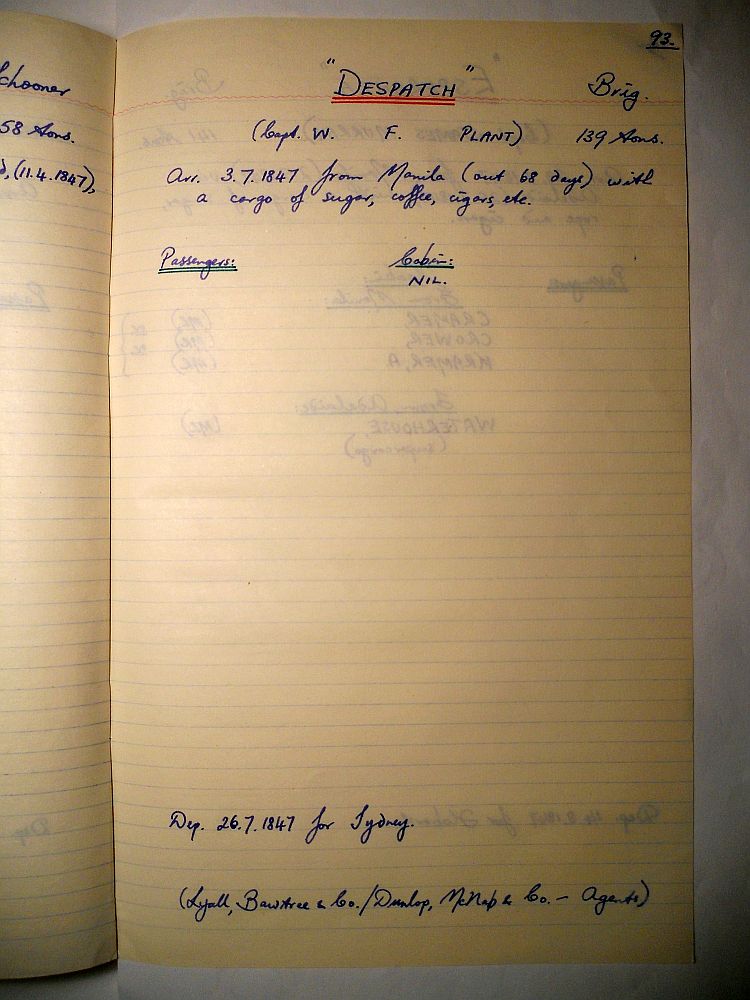 Schooner
58 tons.
(11.4.1847),
93.
"DESPATCH" Brig.
(Capt. W. F. PLANT) 139 tons.
Arr. 3.7.1847 from Manila (out 68 days) with
a cargo of sugar, coffee, cigars, etc.
Passengers: Cabin:
NIL.
Dep. 26.7.1847 for Sydney.
(Lyall, Bawtree & Co./Dunlop, McNab & Co. – Agents)